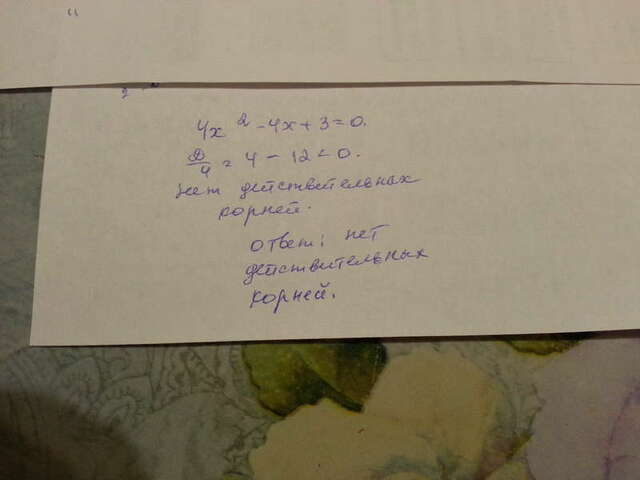 4x² - 4x + 3 = 0.
D/4 = 4 - 12 < 0.
нет действительных
корней.
ответ: нет
действительных
корней.